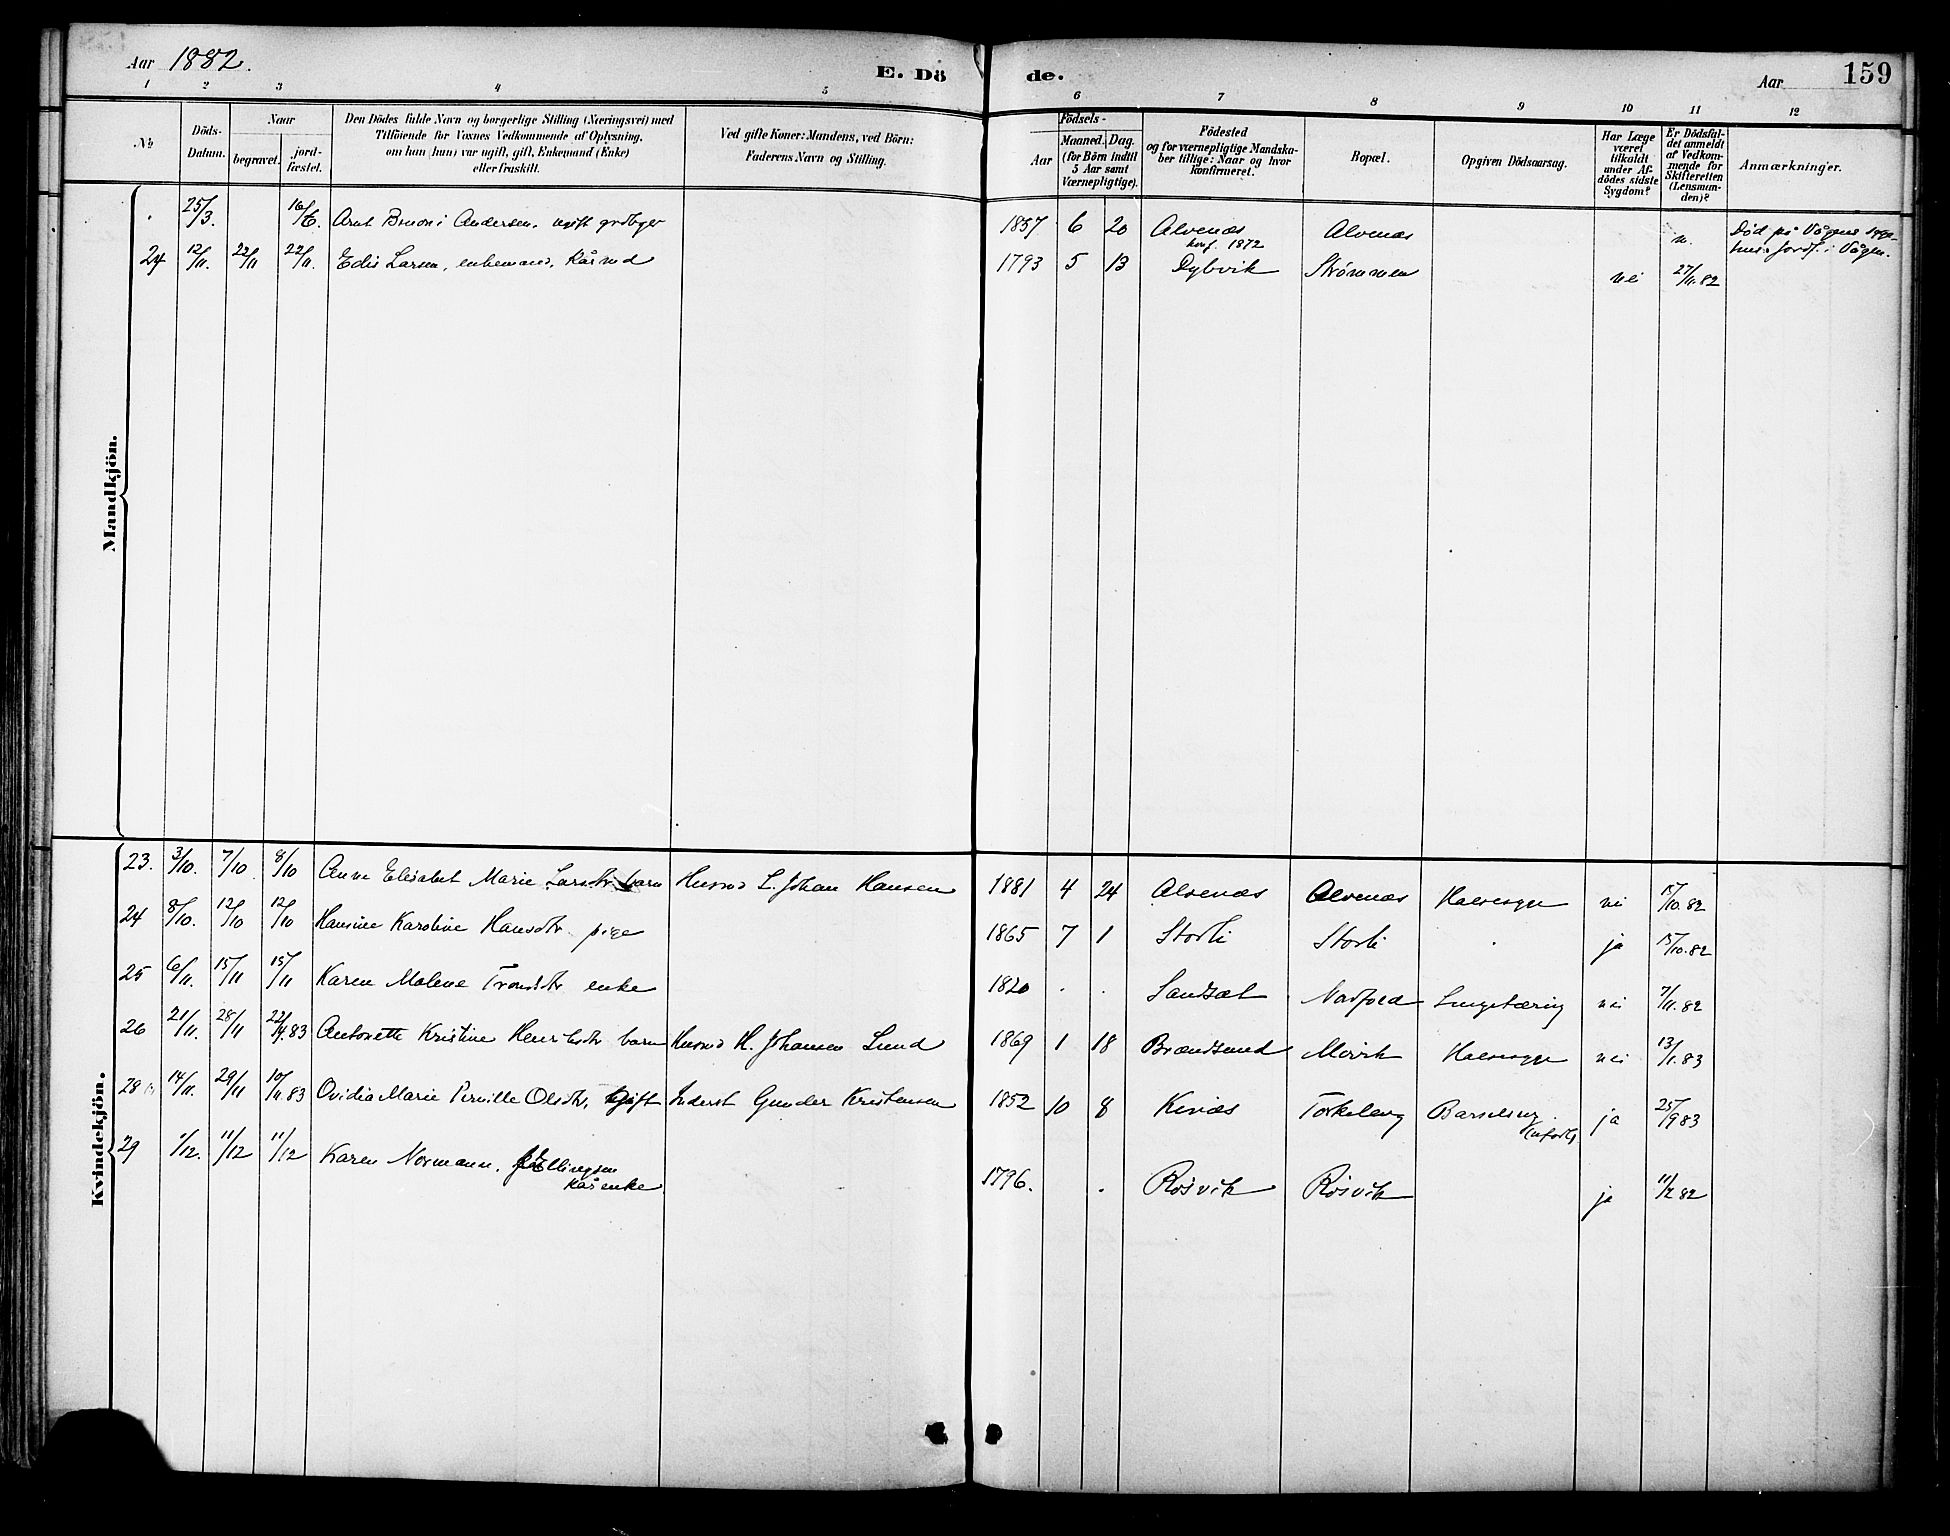 Aar 1882.
E. Dö
de.
Aar
159
1 2 3 4 5
6 7 8 9 10 11 12
No
Döds-
Datum.
Naar
begravet.
jord-
fæstet.
Den Dödes fulde Navn og borgerlige Stilling (Næringsvei) med
Tilföiende for Voxnes Vedkommende af Oplysning,
om han (hun) var ugift, gift, Enkemand (Enke)
eller fraskilt.
Ved gifte Koner: Mandens, ved Börn:
Faderens Navn og Stilling.
Födsels-
Aar
Maaned. Dag.
(for Börn indtil
5 Aar samt
Værnepligtige).
Födested
og for værnepligtige Mandska-
ber tillige: Naar og hvor
konfirmeret.
Bopæl.
Opgiven Dödsaarsag.
Har Læge
været
tilkaldt
under Af-
dödes sidste
Sygdom?
Er Dödsfal-
det anmeldt
af Vedkom-
mende for
Skifteretten
(Lensman-
den)?
Anmærkninger.
Mandkjön.
25/3. 16/6. Arnt Andersen. 1857 6 20 Alvenæs Alvenæs n. Död på Vågens syge-
konf. 1872 hus. Jordf. i Vågen.
24 12/11. 22/11 22/11. Edis Larsen, enkemand, Kårmd 1793 5 13 Dybvik Strømmen nei 27/11.82
Kvindekjön.
23. 3/10. 7/10. 8/10 Anne Elisabet Marie Larsdtr barn Husmd L. Johan Hansen 1881 4 24 Alvenæs Alvenæs Halssyge nei /10.82
24 8/10. 12/10 12/10 Hansine Karoline Hansdtr pige 1865 7 1 Storli Storli . ja 15/10.82
25 6/11. 15/11 15/11 Karen Malene Trondsdtr enke 1820 . . Sandsæt Lungetæring nei 7/11.82
26 21/11. 28/11 83 Antonette Kristine barn Husmd H. Johansen Lund 1869 1 18 Brændsund Mörvik Halssyge nei 13/1.83
28 14/11. 29/11 83 Ovidia Marie Pernille Olsdtr, Gift Inderst Gunder Kristensen 1852 10 8 Kvinæs Barselseng ja 25/9 83
29 1/12. 11/12 11/12 Karen Normann, f. Ellingsen 1796. . Rösvik Rösvik ja 11/12 82
Kårenke